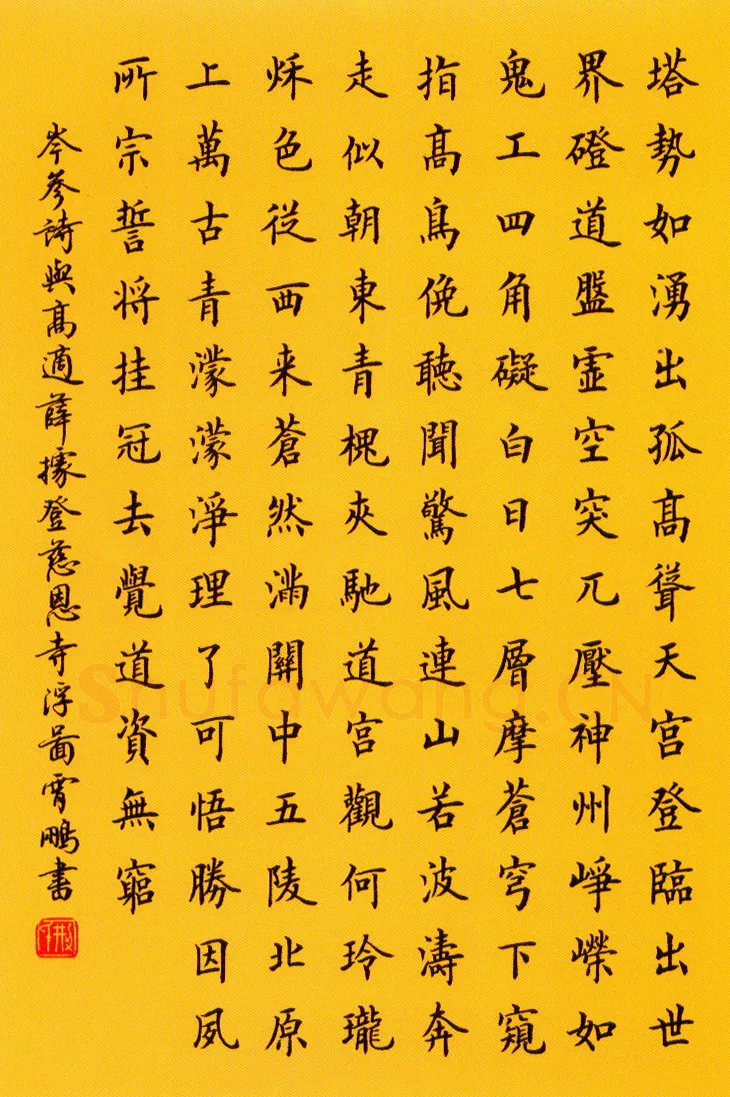 塔勢如湧出孤髙聳天宫登臨出世
界磴道盤虛空突兀壓神州崢嶸如
鬼工四角礙白日七層摩蒼穹下窺
指髙鳥俛聽聞驚風連山若波濤奔
走似朝東青槐夾馳道宫觀何玲瓏
秌色從西来蒼然滿關中五陵北原
上萬古青濛濛淨理了可悟勝因夙
所宗誓将挂冠去覺道資無窮
岑參詩與髙適薛據登慈恩寺浮啚霄鵬書
Shufawang.CN